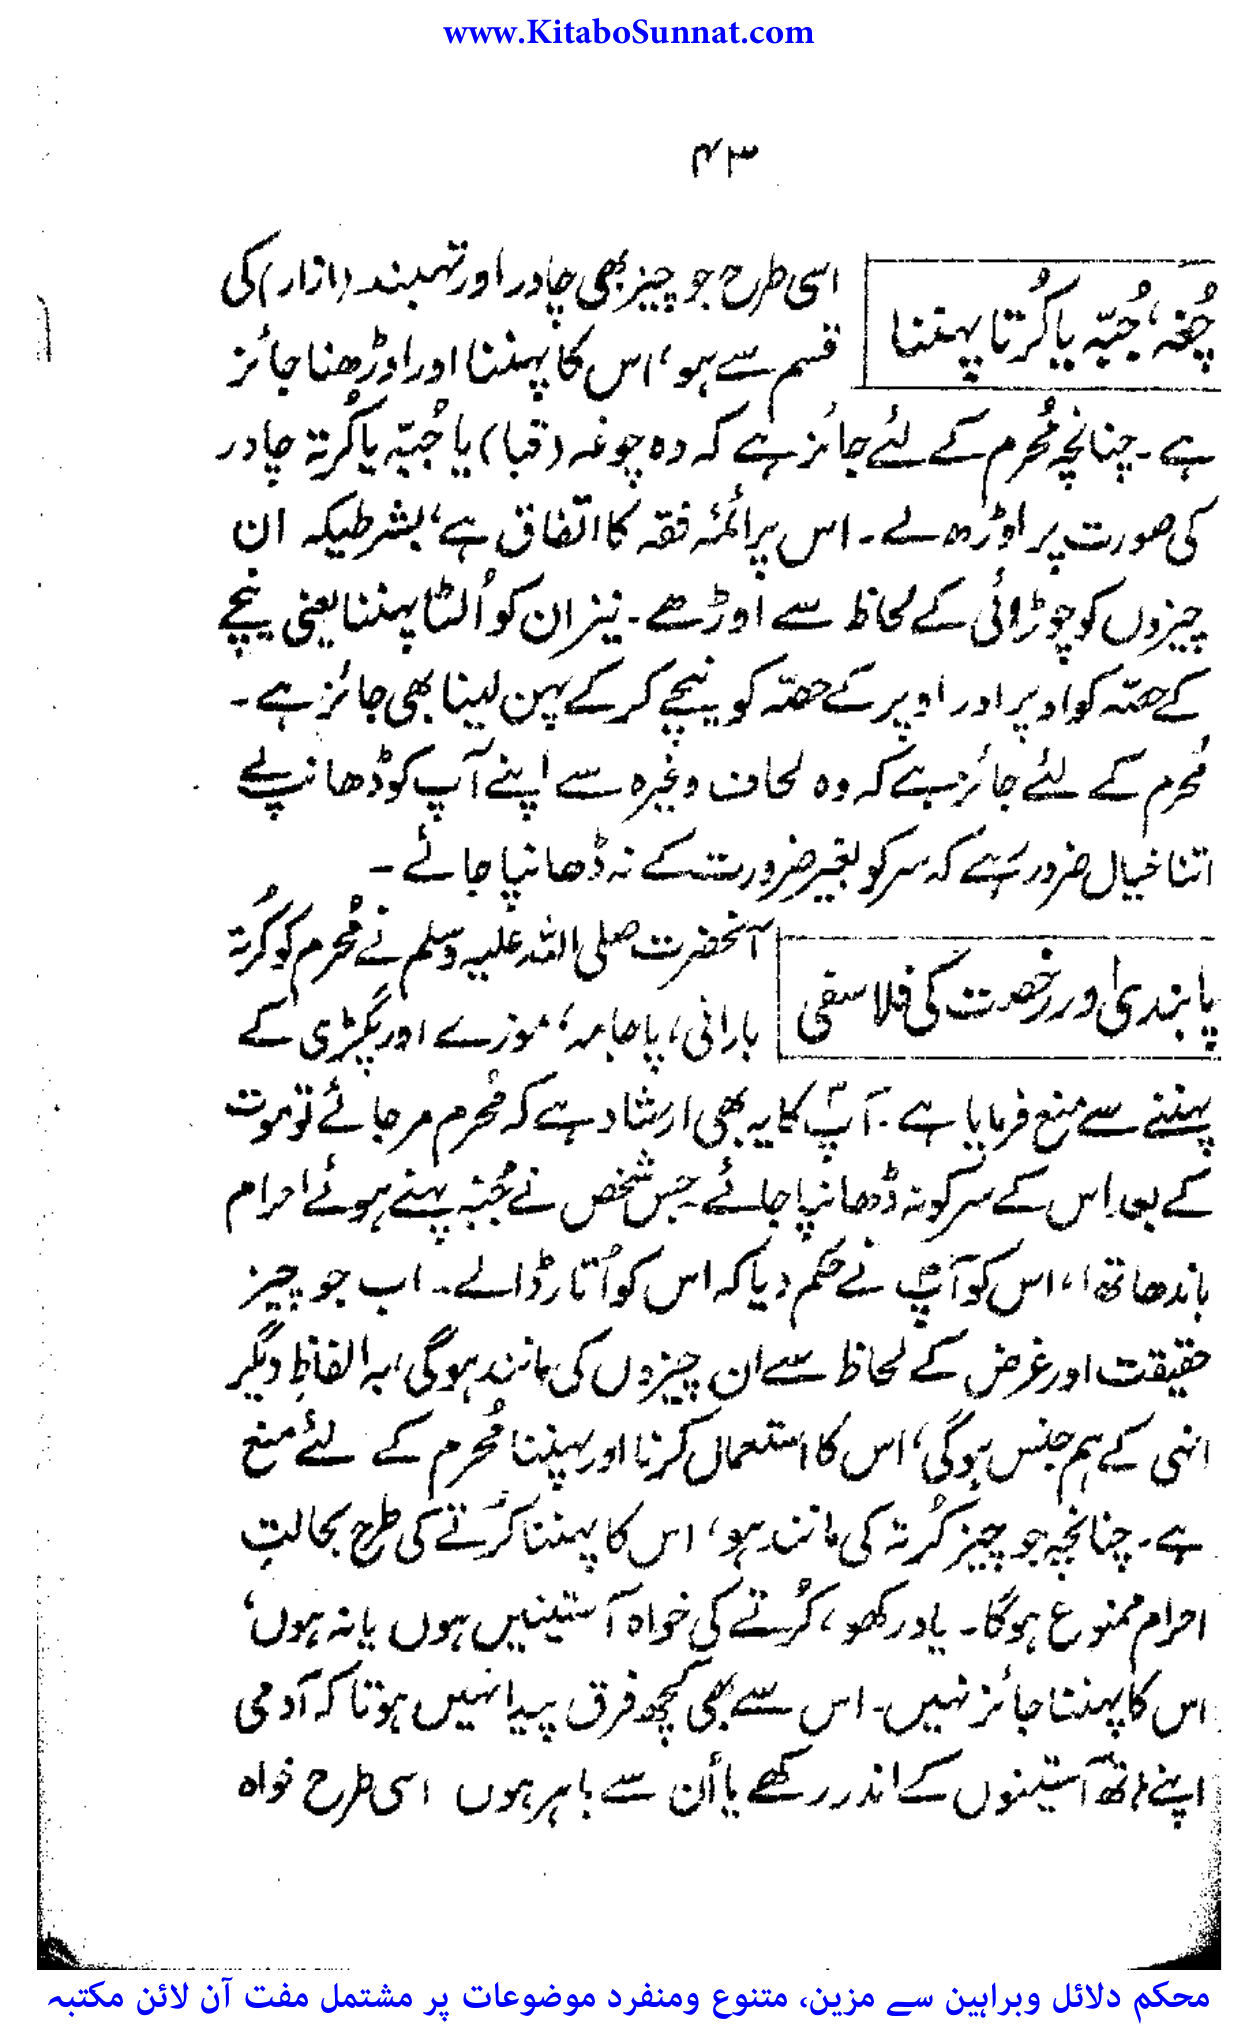 www.KitaboSunnat.com
۴۳
چُغہ، جُبّہ یا کُرتا پہننا
اسی طرح جو چیز بھی چادر اور تہبند (ازار) کی
قسم سے ہو، اس کا پہننا اور اوڑھنا جائز
ہے۔ چنانچہ مُحرم کے لئے جائز ہے کہ وہ چوغہ (قبا) یا جُبّہ یا کُرتہ چادر
کی صورت پر اوڑھ لے۔ اس پر ائمۂ فقہ کا اتفاق ہے، بشرطیکہ ان
چیزوں کو چوڑائی کے لحاظ سے اوڑھے۔ نیز ان کو اُلٹا پہننا یعنی نیچے
کے حصّہ کو اوپر اور اوپر کے حصّہ کو نیچے کر کے پہن لینا بھی جائز ہے۔
مُحرم کے لئے جائز ہے کہ وہ لحاف وغیرہ سے اپنے آپ کو ڈھانپ لے
اتنا خیال ضرور رہے کہ سر کو بغیر ضرورت کے نہ ڈھانپا جائے۔
پابندی اور رخصت کی فلاسفی
آنحضرت صلی اللہ علیہ وسلم نے مُحرم کو کُرتہ
بارانی، پاجامہ، موزے اور پگڑی کے
پہننے سے منع فرمایا ہے۔ آپؐ کا یہ بھی ارشاد ہے کہ مُحرم مر جائے تو موت
کے بعد اس کے سر کو نہ ڈھانپا جائے۔ جس شخص نے جُبّہ پہنے ہوئے احرام
باندھا تھا، اس کو آپؐ نے حکم دیا کہ اس کو اُتار ڈالے۔ اب جو چیز
حقیقت اور غرض کے لحاظ سے ان چیزوں کی مانند ہوگی، بہ الفاظِ دیگر
انہی کے ہم جنس ہوگی، اس کا استعمال کرنا اور پہننا مُحرم کے لئے منع
ہے۔ چنانچہ جو چیز کُرتہ کی مانند ہو، اس کا پہننا کُرتے کی طرح بحالتِ
احرام ممنوع ہوگا۔ یاد رکھو، کُرتے کی خواہ آستینیں ہوں یا نہ ہوں،
اس کا پہننا جائز نہیں۔ اس سے بھی کچھ فرق پیدا نہیں ہوتا کہ آدمی
اپنے ہاتھ آستینوں کے اندر رکھے یا اُن سے باہر ہوں اسی طرح خواہ
محکم دلائل وبراہین سے مزین، متنوع ومنفرد موضوعات پر مشتمل مفت آن لائن مکتبہ